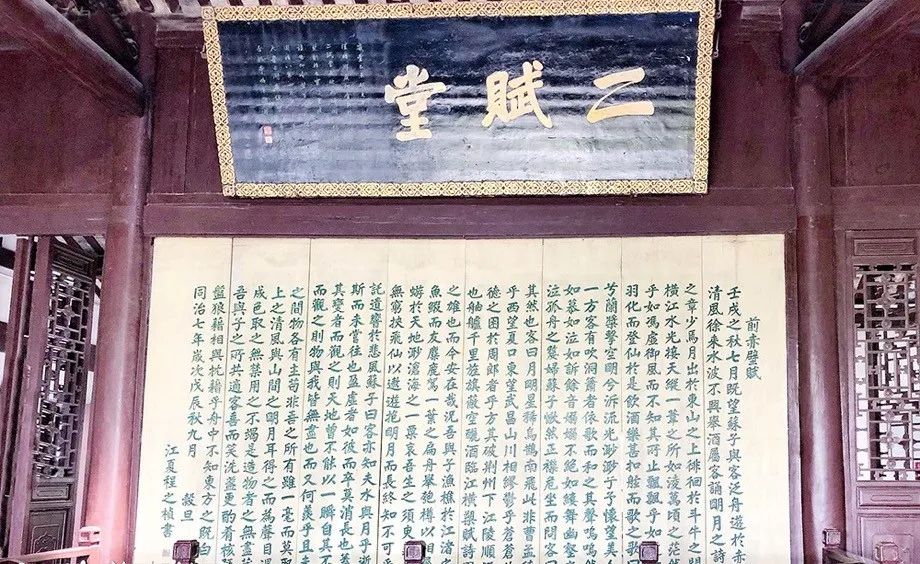 二賦堂
前赤壁賦
壬戌之秋七月既望蘇子與客泛舟遊於赤
清風徐來水波不興舉酒屬客誦明月之詩
之章少焉月出於東山之上徘徊於斗牛之間
橫江水光接天縱一葦之所如凌萬頃之茫
乎如馮虛御風而不知其所止飄飄乎如
羽化而登仙於是飲酒樂甚扣舷而歌之歌
兮蘭槳擊空明兮泝流光渺渺兮予懷望美
一方客有吹洞簫者依歌而和之其聲嗚嗚
如慕如泣如訴餘音嫋嫋不絕如縷舞幽壑
泣孤舟之嫠婦蘇子愀然正襟危坐而問客
其然也客曰月明星稀烏鵲南飛此非曹孟
乎西望夏口東望武昌山川相繆鬱乎蒼
德之困於周郎者乎方其破荊州下江陵順
也舳艫千里旌旗蔽空釃酒臨江橫槊賦詩
之雄也而今安在哉況吾與子漁樵於江渚
魚蝦而友麋鹿駕一葉之扁舟舉匏樽以相
蜉於天地渺滄海之一粟哀吾生之須臾
無窮挾飛仙以遨遊抱明月而長終知不可
託遺響於悲風蘇子曰客亦知夫水與月乎逝
斯而未嘗往也盈虛者如彼而卒莫消長也
其變者而觀之則天地曾不能以一瞬自其不
而觀之則物與我皆無盡也而又何羨乎且
之間物各有主苟非吾之所有雖一毫而莫
上之清風與山間之明月耳得之而為聲目遇
成色取之無禁用之不竭是造物者之無盡
吾與子之所共適客喜而笑洗盞更酌肴核
盤狼藉相與枕藉乎舟中不知東方之既白
同治七年歲次戊辰秋九月 穀旦
江夏程之楨書